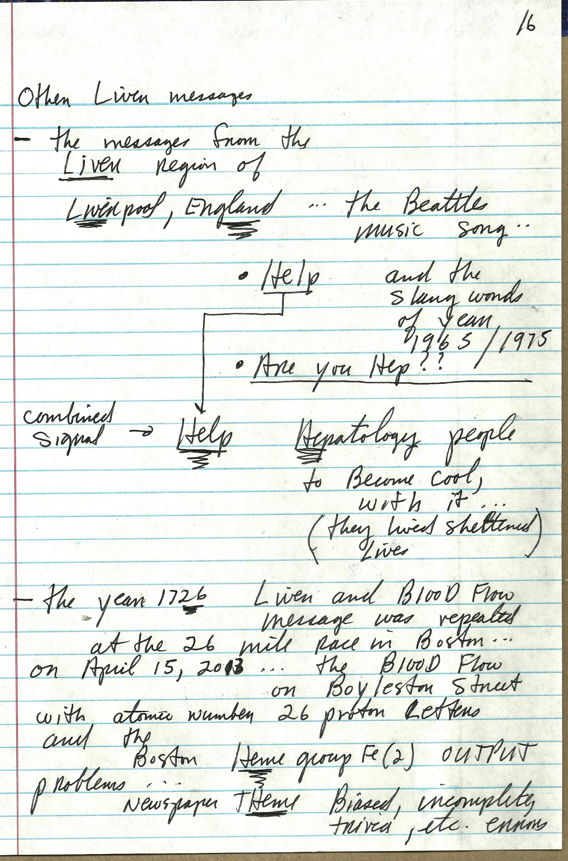 16
Other Liver messages
- the messages from the
Liver region of
Liverpool, England ... the Beattles
music song..
• Help and the
slang words
of year
1965/1975
• Are you Hep??
combined
signal → Help Hepatology people
to Become cool,
with it ...
(they lived sheltered
Lives)
- the year 1726 Liver and BlooD Flow
message was repeated
at the 26 mile race in Boston...
on April 15, 2013 ... the BlooD Flow
on Boyleston Street
with atomic number 26 proton Letters
and the
Boston Heme group Fe(2) OUTPUT
problems ....
Newspaper THeme Biased, incomplete,
trivia, etc. errors